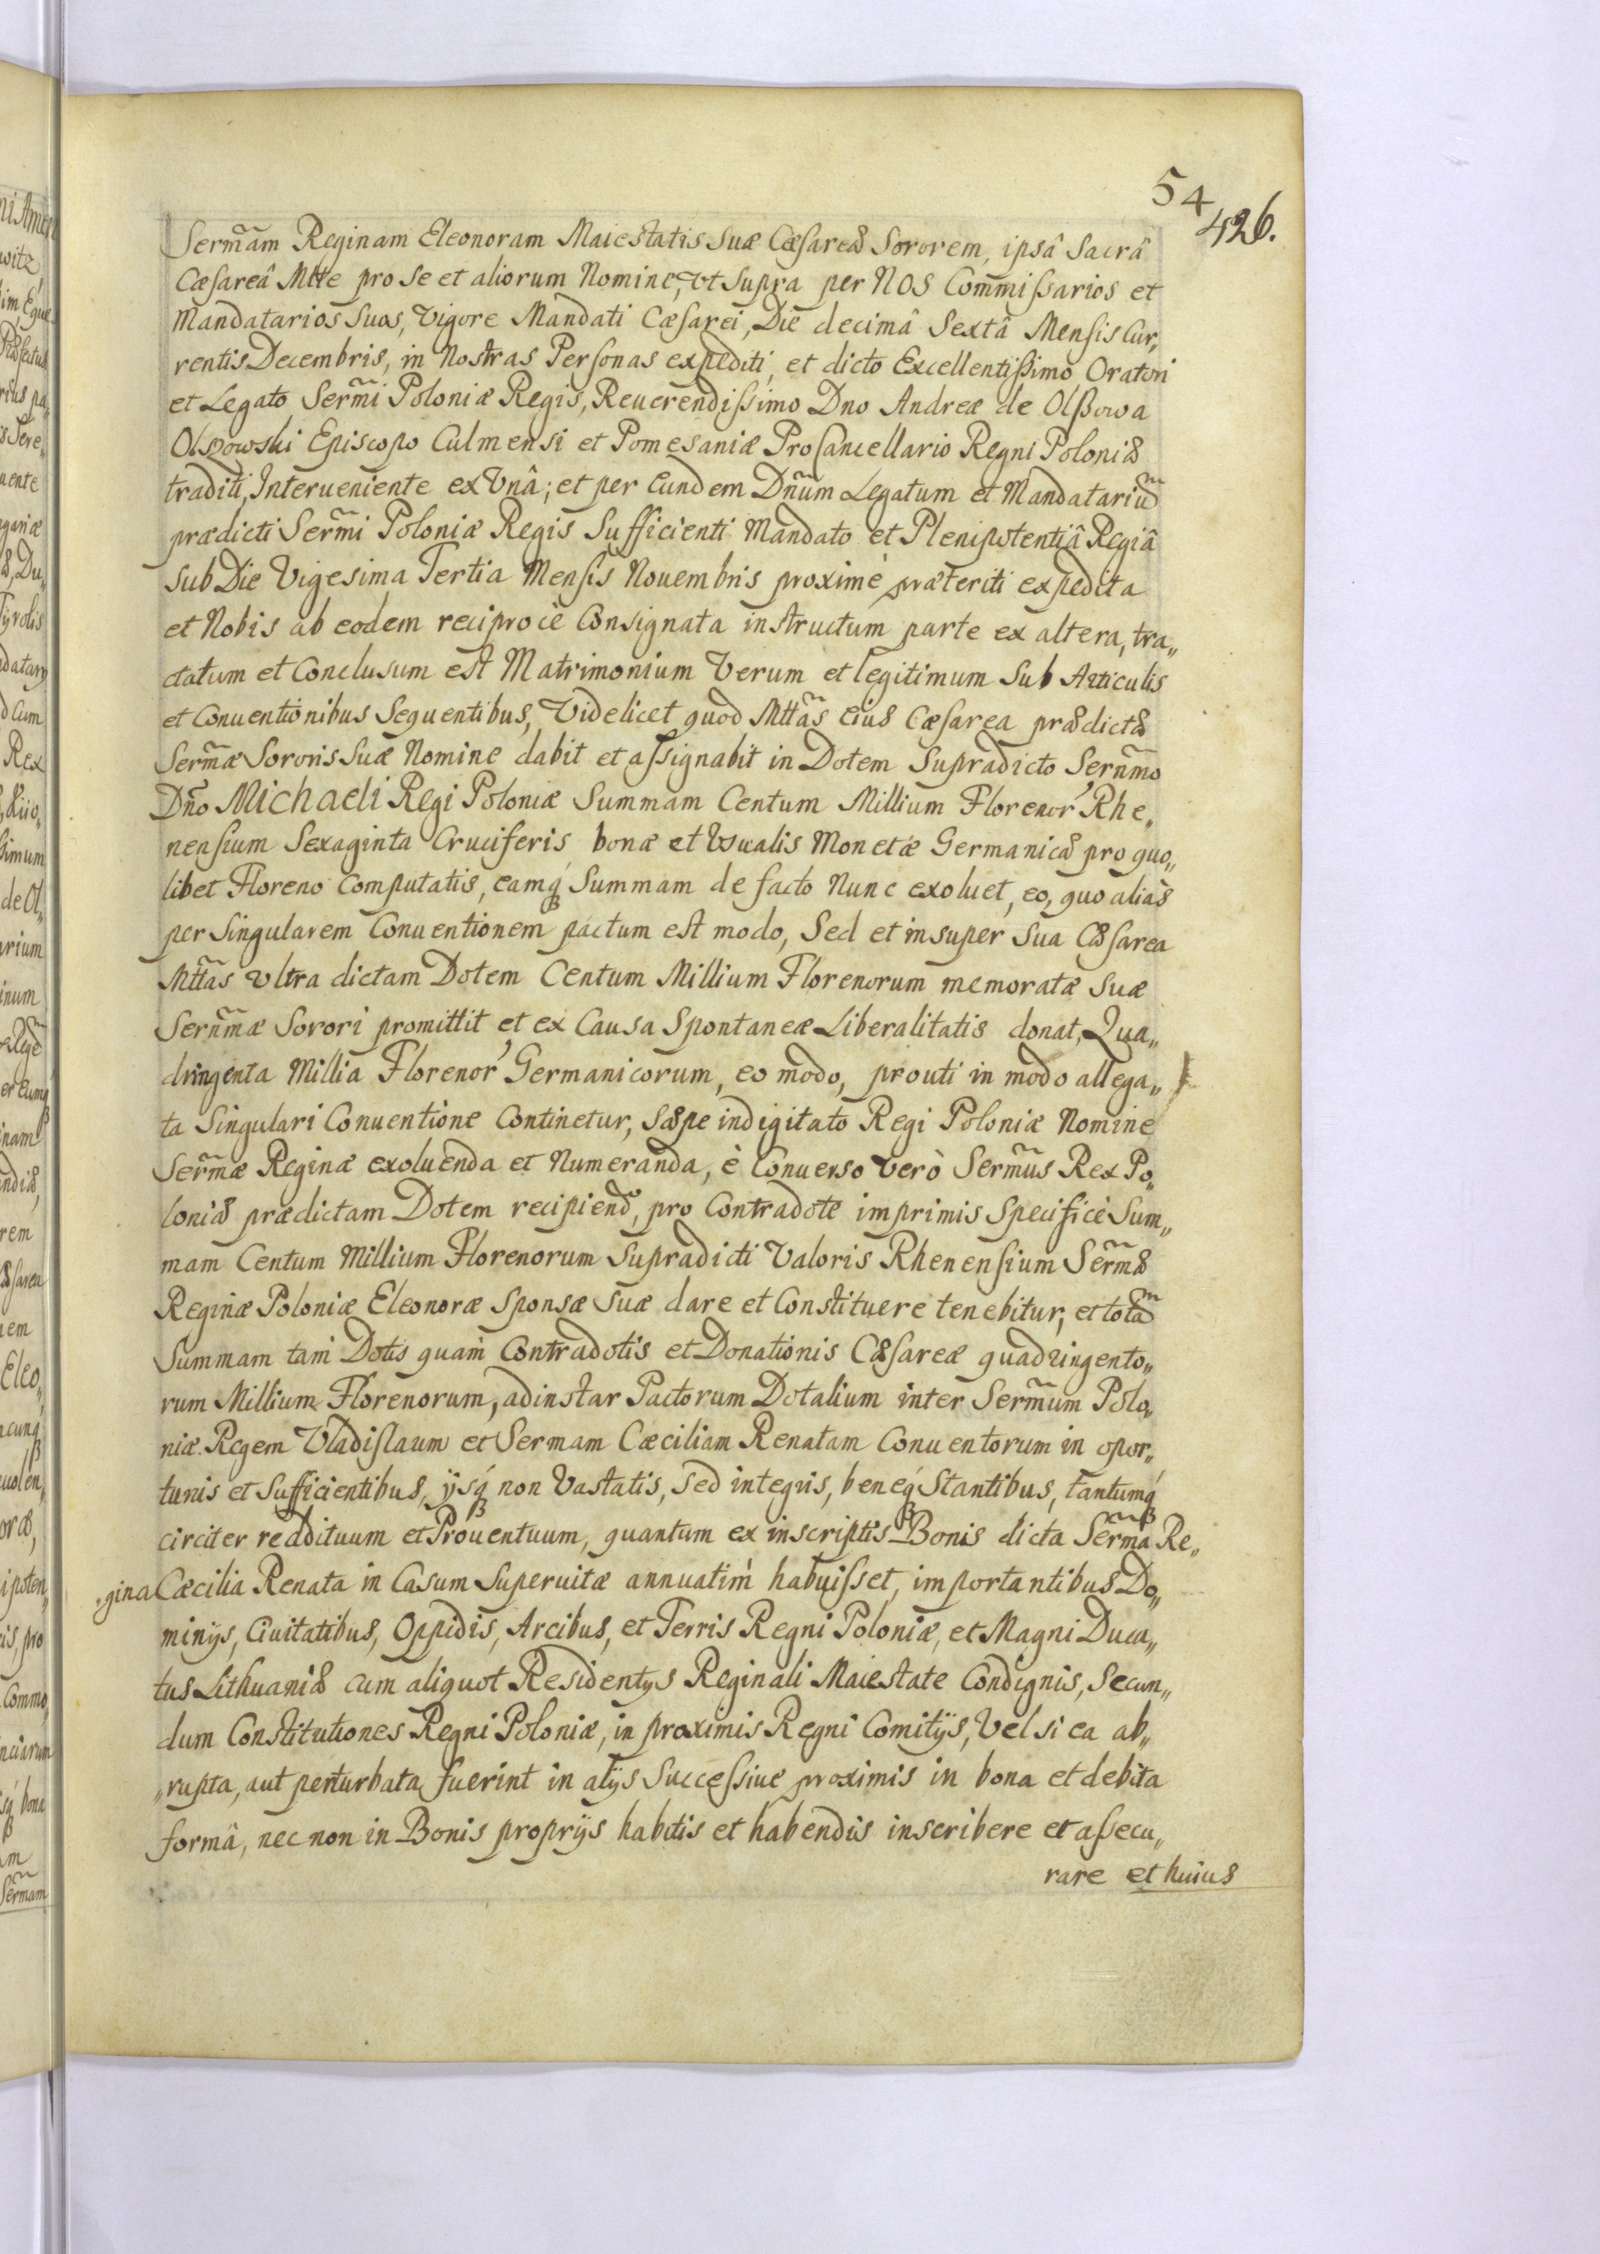 54
426.
Serm̃am Reginam Eleonoram Maiestatis Suæ Cæsareæ Sororem, ipsâ Sacrâ
Cæsareâ Mtte pro se et aliorum Nomine, vt supra per NOS Com̃issarios et
Mandatarios Suos, Vigore Mandati Cæsarei, Die decimâ Sextâ Mensis Cur,,
rentis Decembris, in Nostras Personas expediti, et dicto Excellentissimo Oratori
et Legato Serm̃i Poloniæ Regis, Reuerendissimo Dno Andreæ de Olßowa
Olszowski Episcopo Culmensi et Pomesaniæ ProCancellario Regni Poloniæ
traditi, Interueniente ex Vnâ; et per Eundem Dñum Legatum et Mandatariũ
prædicti Serm̃i Poloniæ Regis Sufficienti Mandato et Plenipotentiâ Regiâ
sub Die Vigesima Tertia Mensis Nouembris proximè præteriti expedita
et Nobis ab eodem reciprocè Consignata instructum parte ex altera, tra,,
ctatum et Conclusum est Matrimonium Verum et legitimum Sub Articulis
et Conuentionibus Sequentibus, Videlicet quod Mttãs Eius Cæsarea prædictæ
Serm̃æ Sororis Suæ Nomine dabit et assignabit in Dotem Supradicto Serñmo
Dño Michaeli Regi Poloniæ Summam Centum Millium Florenor' Rhe,,
nensium Sexaginta Cruciferis bonæ et Vsualis Monetæ Germanicæ pro quo,,
libet Floreno Computatis, eamq́ Summam de facto Nunc exoluet, eo, quo aliàs
per Singularem Conuentionem pactum est modo, Sed et insuper Sua Cæsarea
Mttãs Vltra dictam Dotem Centum Millium Florenorum memoratæ Suæ
Serñmæ Sorori promittit et ex Causa Spontaneæ Liberalitatis donat, Qua,,
dringenta Millia Florenor' Germanicorum, eo modo, prouti in modo allega,,
ta Singulari Conuentione Continetur, Sæpe indigitato Regi Poloniæ Nomine
Serm̃æ Reginæ exoluenda et Numeranda, è Conuerso Verò Serm̃us Rex Po,,
loniæ prædictam Dotem recipiend, pro Contradote imprimis Specificè Sum,,
mam Centum Millium Florenorum Supradicti Valoris Rhenensium Serm̃æ
Reginæ Poloniæ Eleonoræ Sponsæ Suæ dare et Constituere tenebitur, et totã
Summam tam Dotis quam Contradotis et Donationis Cæsareæ quadringento,,
rum Millium Florenorum, ad instar Pactorum Dotalium inter Serm̃um Polo,,
niæ Regem Vladislaum et Sermam Cæciliam Renatam Conuentorum in opor,,
tunis et Sufficientibus, ijsq́ non Vastatis, Sed integris, beneq́ Stantibus, tantumq́
circiter reddituum et Prouentuum, quantum ex inscriptis Bonis dicta Serm̃a Re,,
,,gina Cæcilia Renata in Casum Superuitæ annuatim habuisset, importantibus Do,,
minijs, Ciuitatibus, Oppidis, Arcibus, et Terris Regni Poloniæ, et Magni Duca,,
tus Lithuaniæ cum aliquot Residentijs Reginali Maiestate Condignis, Secun,,
dum Constitutiones Regni Poloniæ, in proximis Regni Comitijs, Vel si ea ab,,
,,rupta, aut perturbata fuerint in alijs Successiue proximis in bona et debita
formâ, nec non in Bonis proprijs habitis et habendis inscribere et assecu,,
rare et huius